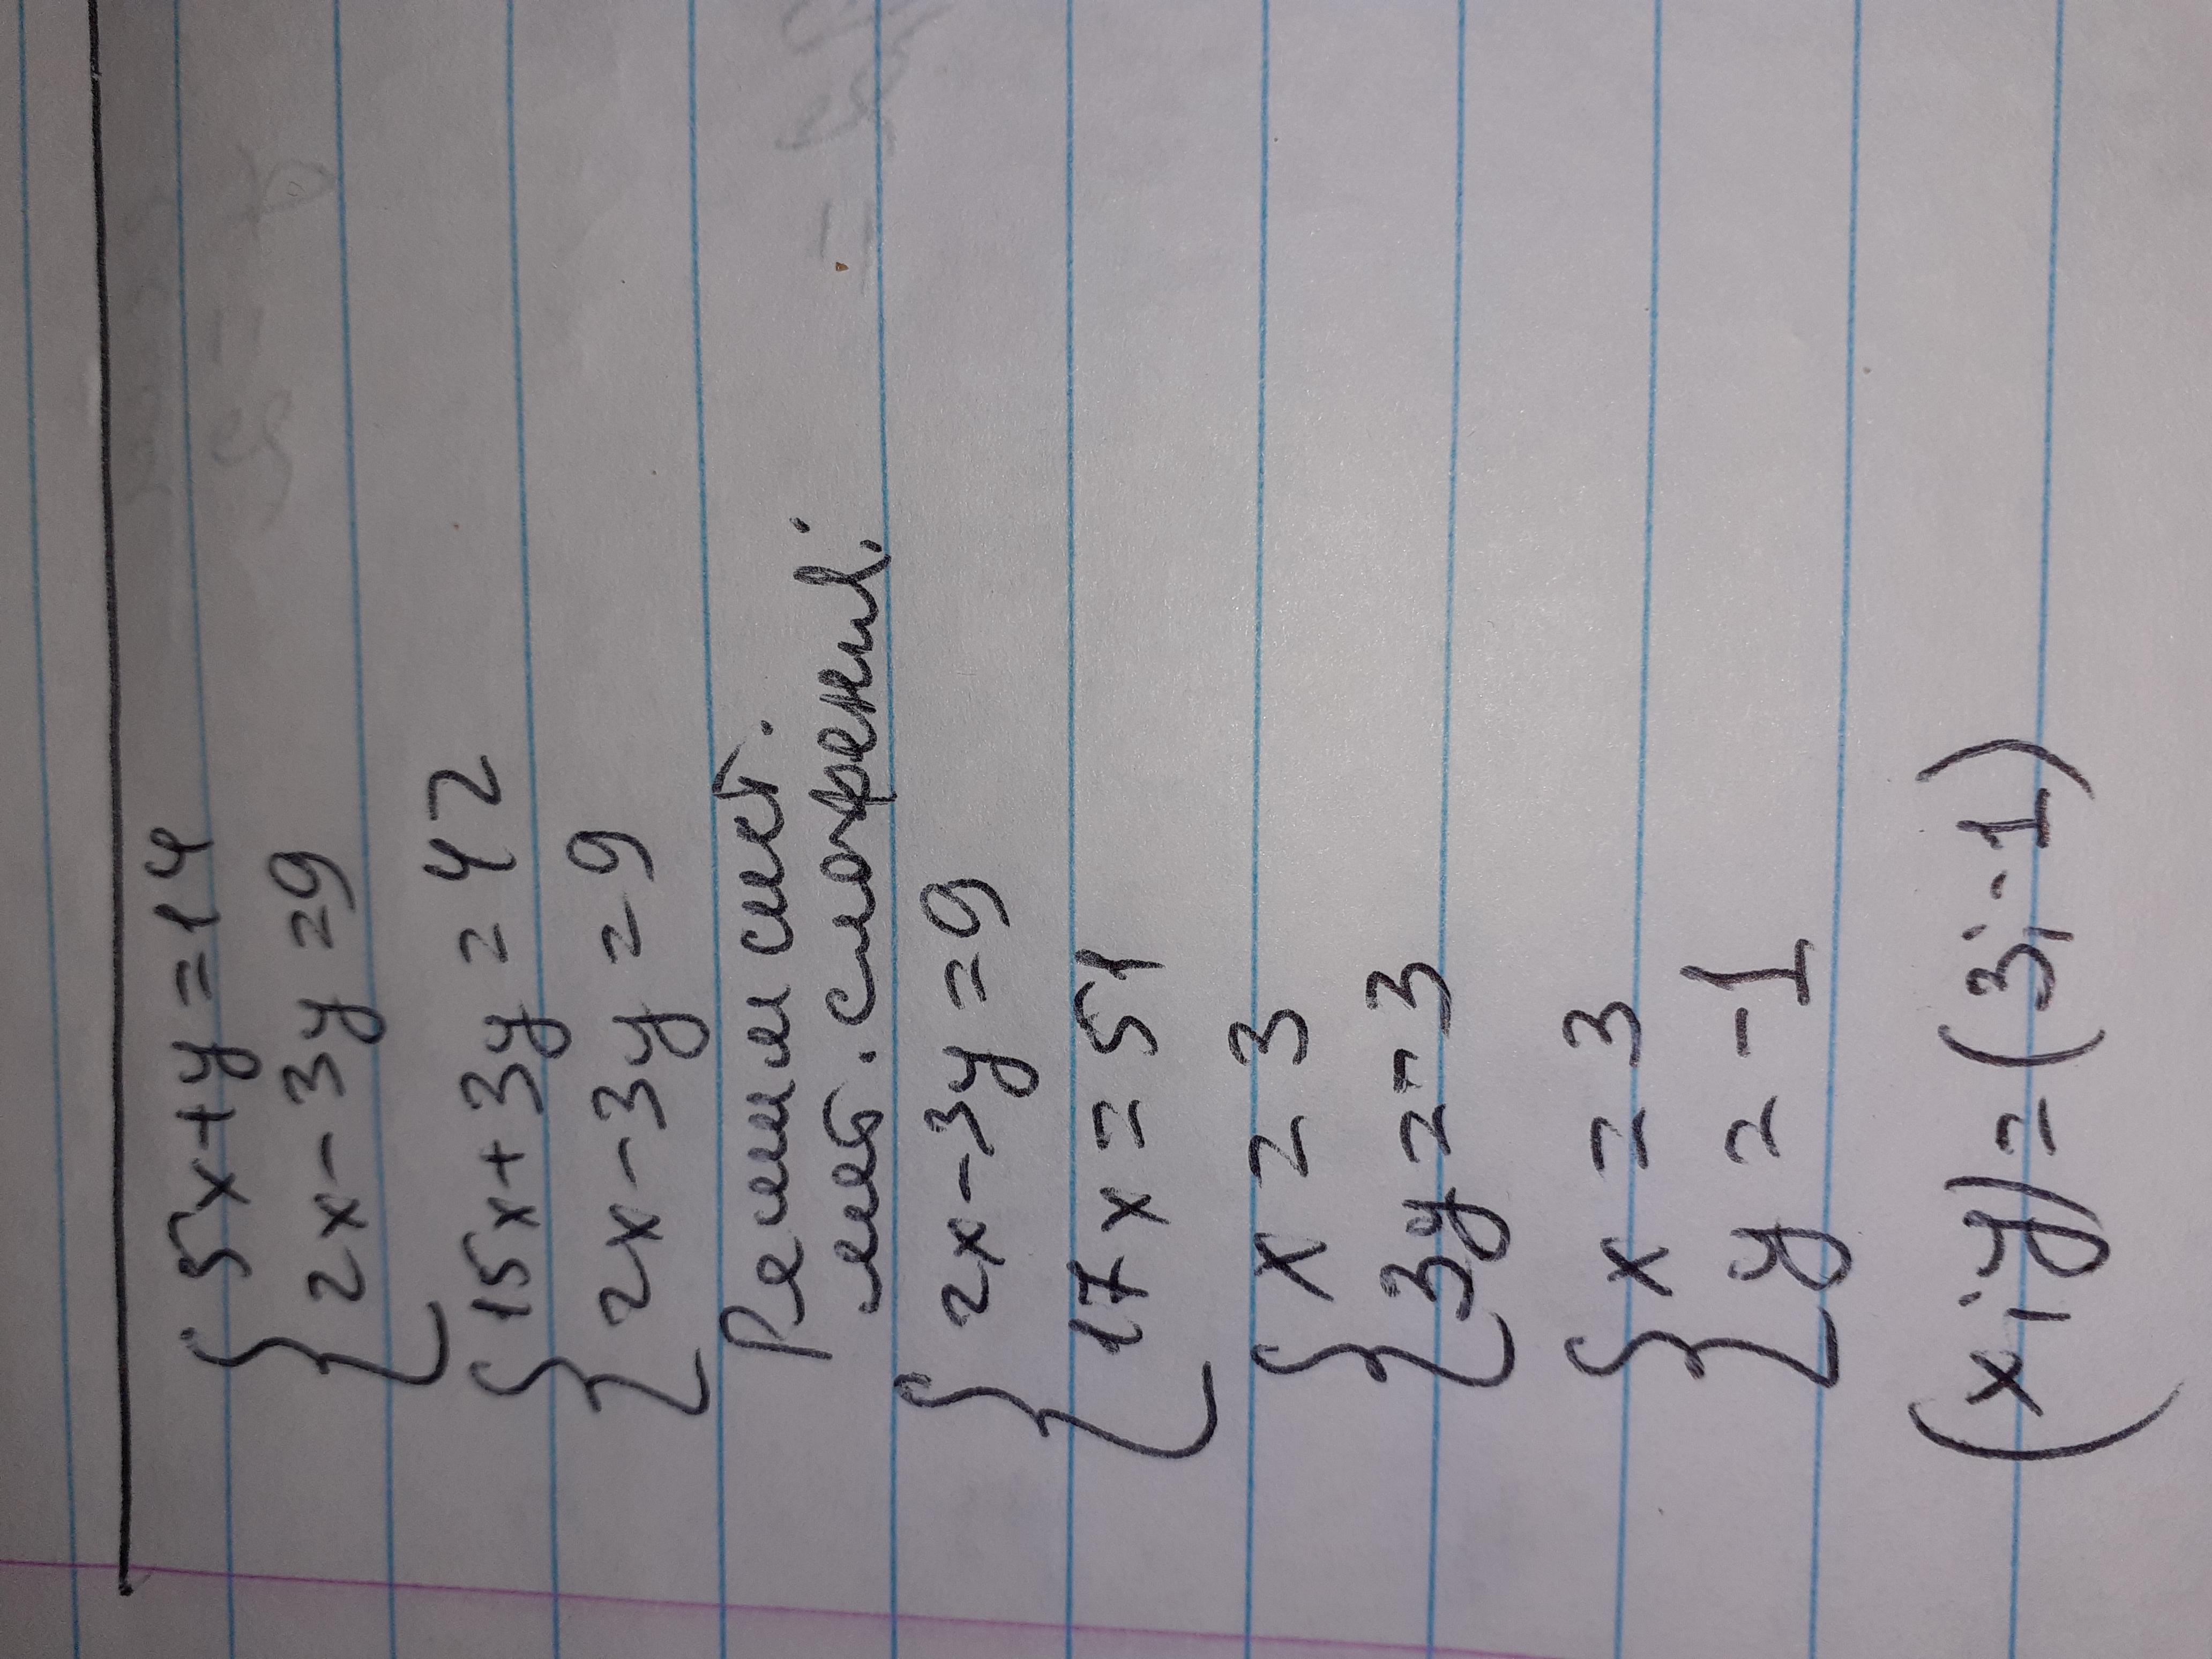 {5x+y=14
{2x-3y=9
{15x+3y=42
{2x-3y=9
Решим сист.
мет. сложений.
{2x-3y=9
{17x=51
{x=3
{3y=-3
{x=3
{y=-1
(x;y)=(3;-1)